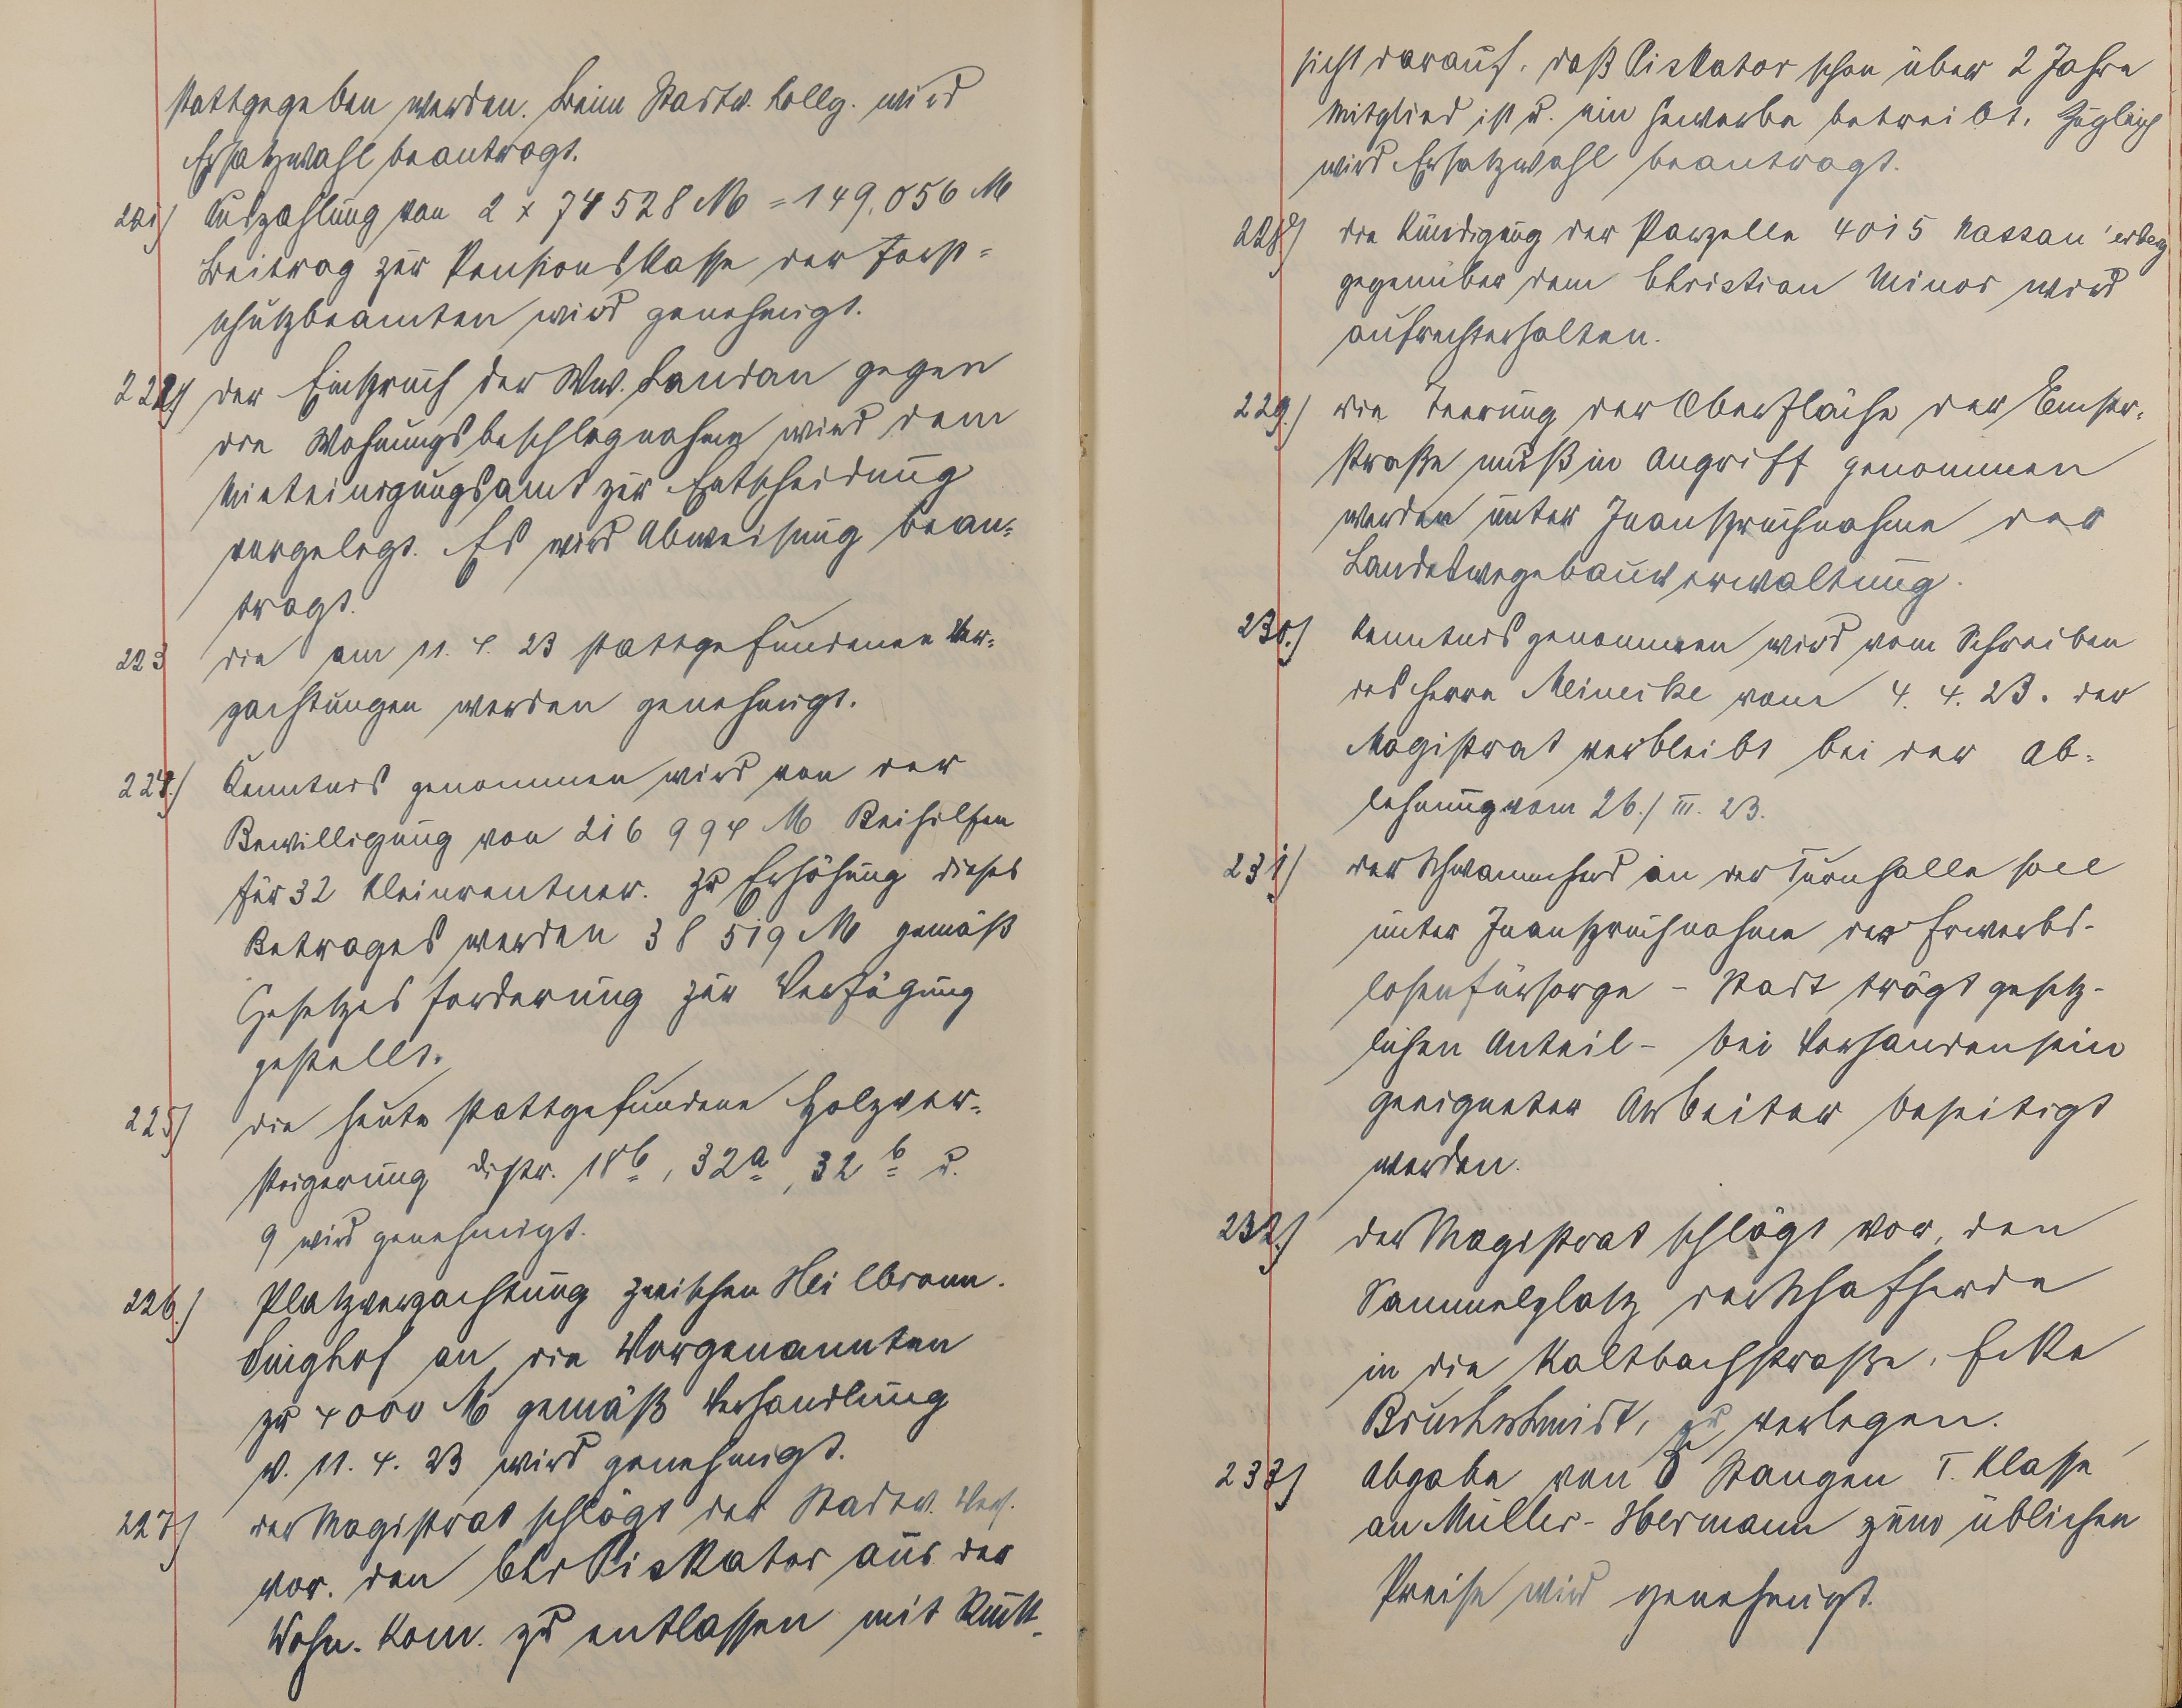 stattgegeben werden. Beim Stadtv. Kollg. wird
Ersatzwahl beantragt.
221) Auszahlung von 2 x 74528 M = 149.056 M
Beitrag zur Pensionskasse der Forst=
schutzbeamten wird genehmigt.
222) der Einspruch der Ww. Landau gegen
die Wohnungsbeschlagnahme wird dem
Mieteinigungsamt zur Entscheidung
vorgelegt. Es wird Abweisung bean=
tragt.
223 die am 11. 4. 23 stattgefundenen Ver=
pachtungen werden genehmigt.
224.) Kenntnis genommen wird von der
Bewilligung von 216 994 M Beihilfen
für 32 Kleinrentner. Zu Erhöhung dieses
Betrages werden 38 519 M gemäß
Gesetzesforderung zur Verfügung
gestellt.
225) die heute stattgefundene Holzver=
steigerung Distr. 18b, 32a, 32b u.
9 wird genehmigt.
226.) Platzverpachtung zwischen Heilbronn.
Singhof an die Vorgenannten
zu 4000 M gemäß Verhandlung
v. 11. 4. 23 wird genehmigt.
227) der Magistrat schlägt der Stadtv. Vers.
vor. den Chr Piskator aus der
Wohn. Kom. zu entlassen mit Rück=
sicht darauf, daß Piskator schon über 2 Jahre
Mitglied ist u. ein Gewerbe betreibt. Zugleich
wird Ersatzwahl beantragt.
228) die Kündigung der Parzelle 4015 Nassau'erberg
gegenüber dem Christian Minor wird
aufrechterhalten.
229.) die Teerung der Oberfläche der Emser.
straße muß in Angriff genommen
werden unter Inanspruchnahme der
Landeswegebauverwaltung.
230.) Kenntnis genommen wird vom Schreiben
des Herrn Meinecke vom 4. 4. 23. der
Magistrat verbleibt bei der Ab=
lehnung vom 26./ III. 23.
231) der Schwammherd in der Turnhalle soll
unter Inanspruchnahme der Erwerbs-
losenfürsorge - Stadt trägt gesetz-
lichen Anteil - bei Vorhandensein
geeigneter Arbeiter beseitigt
werden.
232.) der Magistrat schlägt vor, den
Sammelplatz der Schafherde
in die Kaltbachstraße, Ecke
Bruchschmidt, zu verlegen.
233) Abgabe von 8 Stangen I. Klasse
an Müller-Hermann zum üblichen
Preise wird genehmigt.